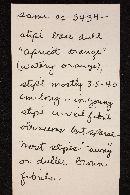 same as 3434 -
stipe base dull
"apricot orange"
(watery orange),
stipe mostly 3.5-40
cm long. in young
stipe is veil fibrils
but
most stipes "awny"
or duller brown
fibrils.